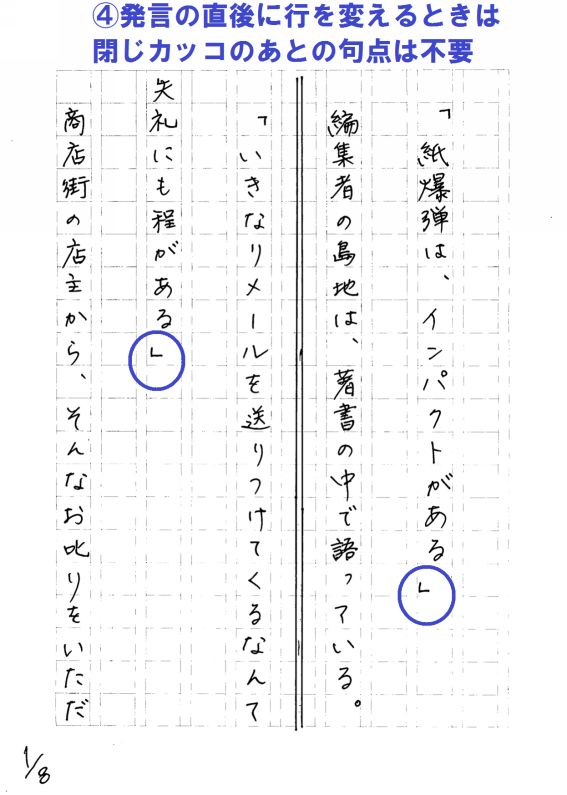 ④発言の直後に行を変えるときは
閉じカッコのあとの句点は不要
「紙爆弾は、インパクトがある」
編集者の島地は、著書の中で語っている。
「いきなりメールを送りつけてくるなんて
失礼にも程がある」
商店街の店主から、そんなお叱りをいただ
1/8